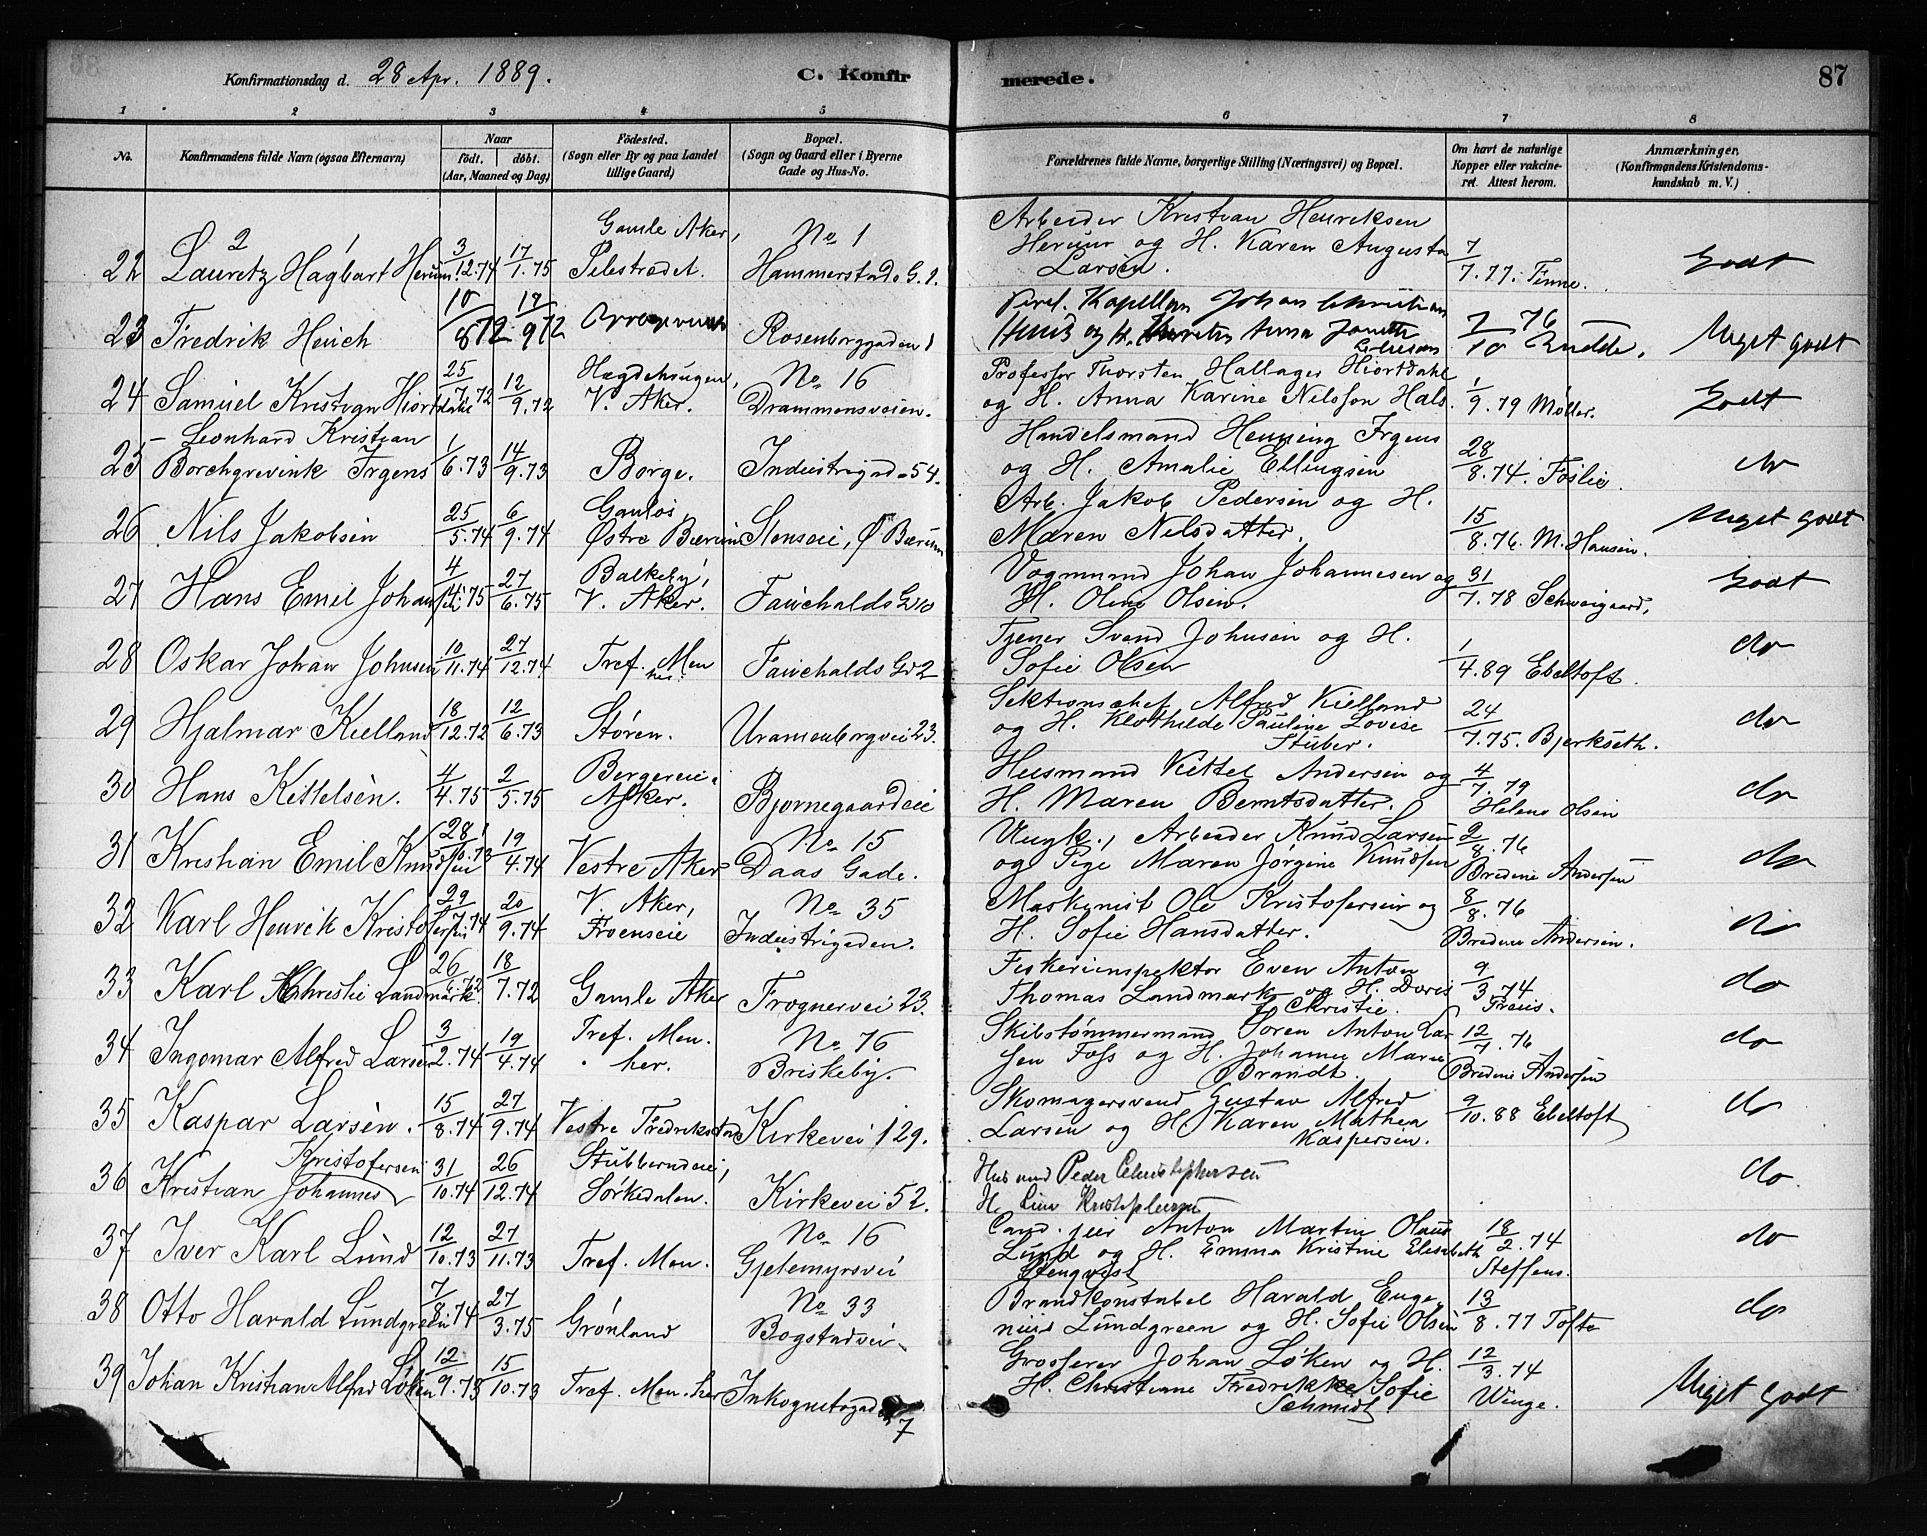 Konfirmationsdag d. 28 Apr. 1889. C. Konfirmerede. 87
1 2 3 4 5 6 7 8
No. Konfirmandens fulde Navn (ogsaa Efternavn) Naar födt. döbt. (Aar, Maaned og Dag) Födested. (Sogn eller By og paa Landet tillige Gaard) Bopæl. (Sogn og Gaard eller i Byerne Gade og Hus-No. Forældrenes fulde Navne, borgerlige Stilling (Næringsvei) og Bopæl. Om havt de naturlige Kopper eller vakcineret. Attest herom. Anmærkninger, (Konfirmandens Kristendomskundskab m. V.)
2 1 Gamle Aker, No 1 Arbeider Kristian Henriksen
22 Lauretz Hagbart Herum 3/12.74 17/1.75 Pilestrædet. Hammerstads G. 1. Herum og H. Karen Augusta Larsen. 7/7.77. Finne. Godt
23 Fredrik Heuch 10/8 72 19/9 72 Rosenborggaden 1 Kapellan Johan Christian Heuch og H. Anna 7/10 76 Meget godt
24 Samuel Kristian Hiortdahl 25/7.72 12/9.72 Hægdehaugen, V. Aker. No 16 Drammensveien. Professor Thorsten Hallager Hiortdahl
og H. Anna Karine Nilsson Hals. 1/9.79 Møller. Godt
25 Leonhard Kristian Borchgrevink Irgens 1/6.73 14/9.73 Borge. Industrigad. 54. Handelsmand Henning Irgens
og H. Amalie Ellingsen 28/8.74. Foslie. do
26 Nils Jakobsen 25/5.74 6/9.74 Østre Bærum Stenseie, Ø Bærum Arb. Jakob Pedersen og H.
Maren Nilsdatter. 15/8.76. M. Hansen. Meget godt
27 Hans Emil Johansen 4/4.75 27/6.75 Balkeby, V. Aker. Fauchalds G 10 Vognmand Johan Johannesen og
H. Oline Olsen. 31/7.78 Schweigaard, Godt
28 Oskar Johan Johnsen 10/11.74 27/12.74 Tref. Men her. Fauchalds G 2 Tjener Svend Johnsen og H.
Sofie Olsen 1/4.89 Ebeltoft. do
29 Hjalmar Kielland 18/12.72 12/6.73 Støren. Uranienborgvei 23. Sektionschef Alfred Kielland
og H. Klothilde Pauline Lovise Stuber. 24/7.75. Bjerkseth. do
30 Hans Kittelsen. 4/4.75 2/5.75 Bergereie, Asker. Bjørnegaardeie Husmand Kittel Andersen og
H. Maren Berntsdatter. 4/7.79 Helene Olsen do
31 Kristian Emil Knudsen 28/10.73 19/4.74 Vestre Aker No 15 Daas Gade. Ungk., Arbeider Knud Larsen
og Pige Maren Jørgine Knudsen 2/8.76 Bredine Andersen do
32 Karl Henrik Kristofersen 29/7.74 20/9.74 V. Aker, Froenseie No 35 Industrigaden. Maskinist Ole Kristofersen og
H. Sofie Hansdatter. 8/8.76 Bredine Andersen. do
33 Karl Christie Landmark 26/4.72 18/7.72 Gamle Aker Frognervei 23. Fiskeriinspektor Even Anton
Thomas Landmark og H. Doris Christie. 9/3.74 do
34 Ingomar Alfred Larsen 3/2.74 19/4.74 Tref. Men. her. No 76 Briskeby. Skibstømmermand Søren Anton Larsen
Foss og H. Johanne Marie Brandt. 12/7.76 Bredine Andersen do
35 Kaspar Larsen. 15/8.74 27/9.74 Vestre Fredrikstad Kirkevei 129. Skomagersvend Gustav Alfred
Larsen og H. Karen Mathea Kaspersen. 9/10.88 Ebeltoft do
36 Kristian Johannes Kristofersen 31/10.74 26/12.74 Sørkedalen. Kirkevei 52. Husmand Peder Christophersen
H. do
37 Iver Karl Lund 12/10.73 27/11.73 Tref. Men. No 16 Gjetemyrsvei Cand. jur Anton Martin Olaus
Lund og H. Emma Kristine Elisabeth Stenqvist 18/2.74 Steffens. do
38 Otto Harald Lundgreen 7/8.74 27/3.75 Grønland No 33 Bogstadvei. Brandkonstabel Harald Eugenius
Lundgreen og H. Sofie Olsen 13/8.77 Tofte do
39 Johan Kristian Alfred Løken 12/9.73 15/10.73 Tref. Men. her Inkognitogad 7 Grosserer Johan Løken og H.
H. Christiane Fredrikke Sofie Schmidt 12/3.74 Winge. Meget godt